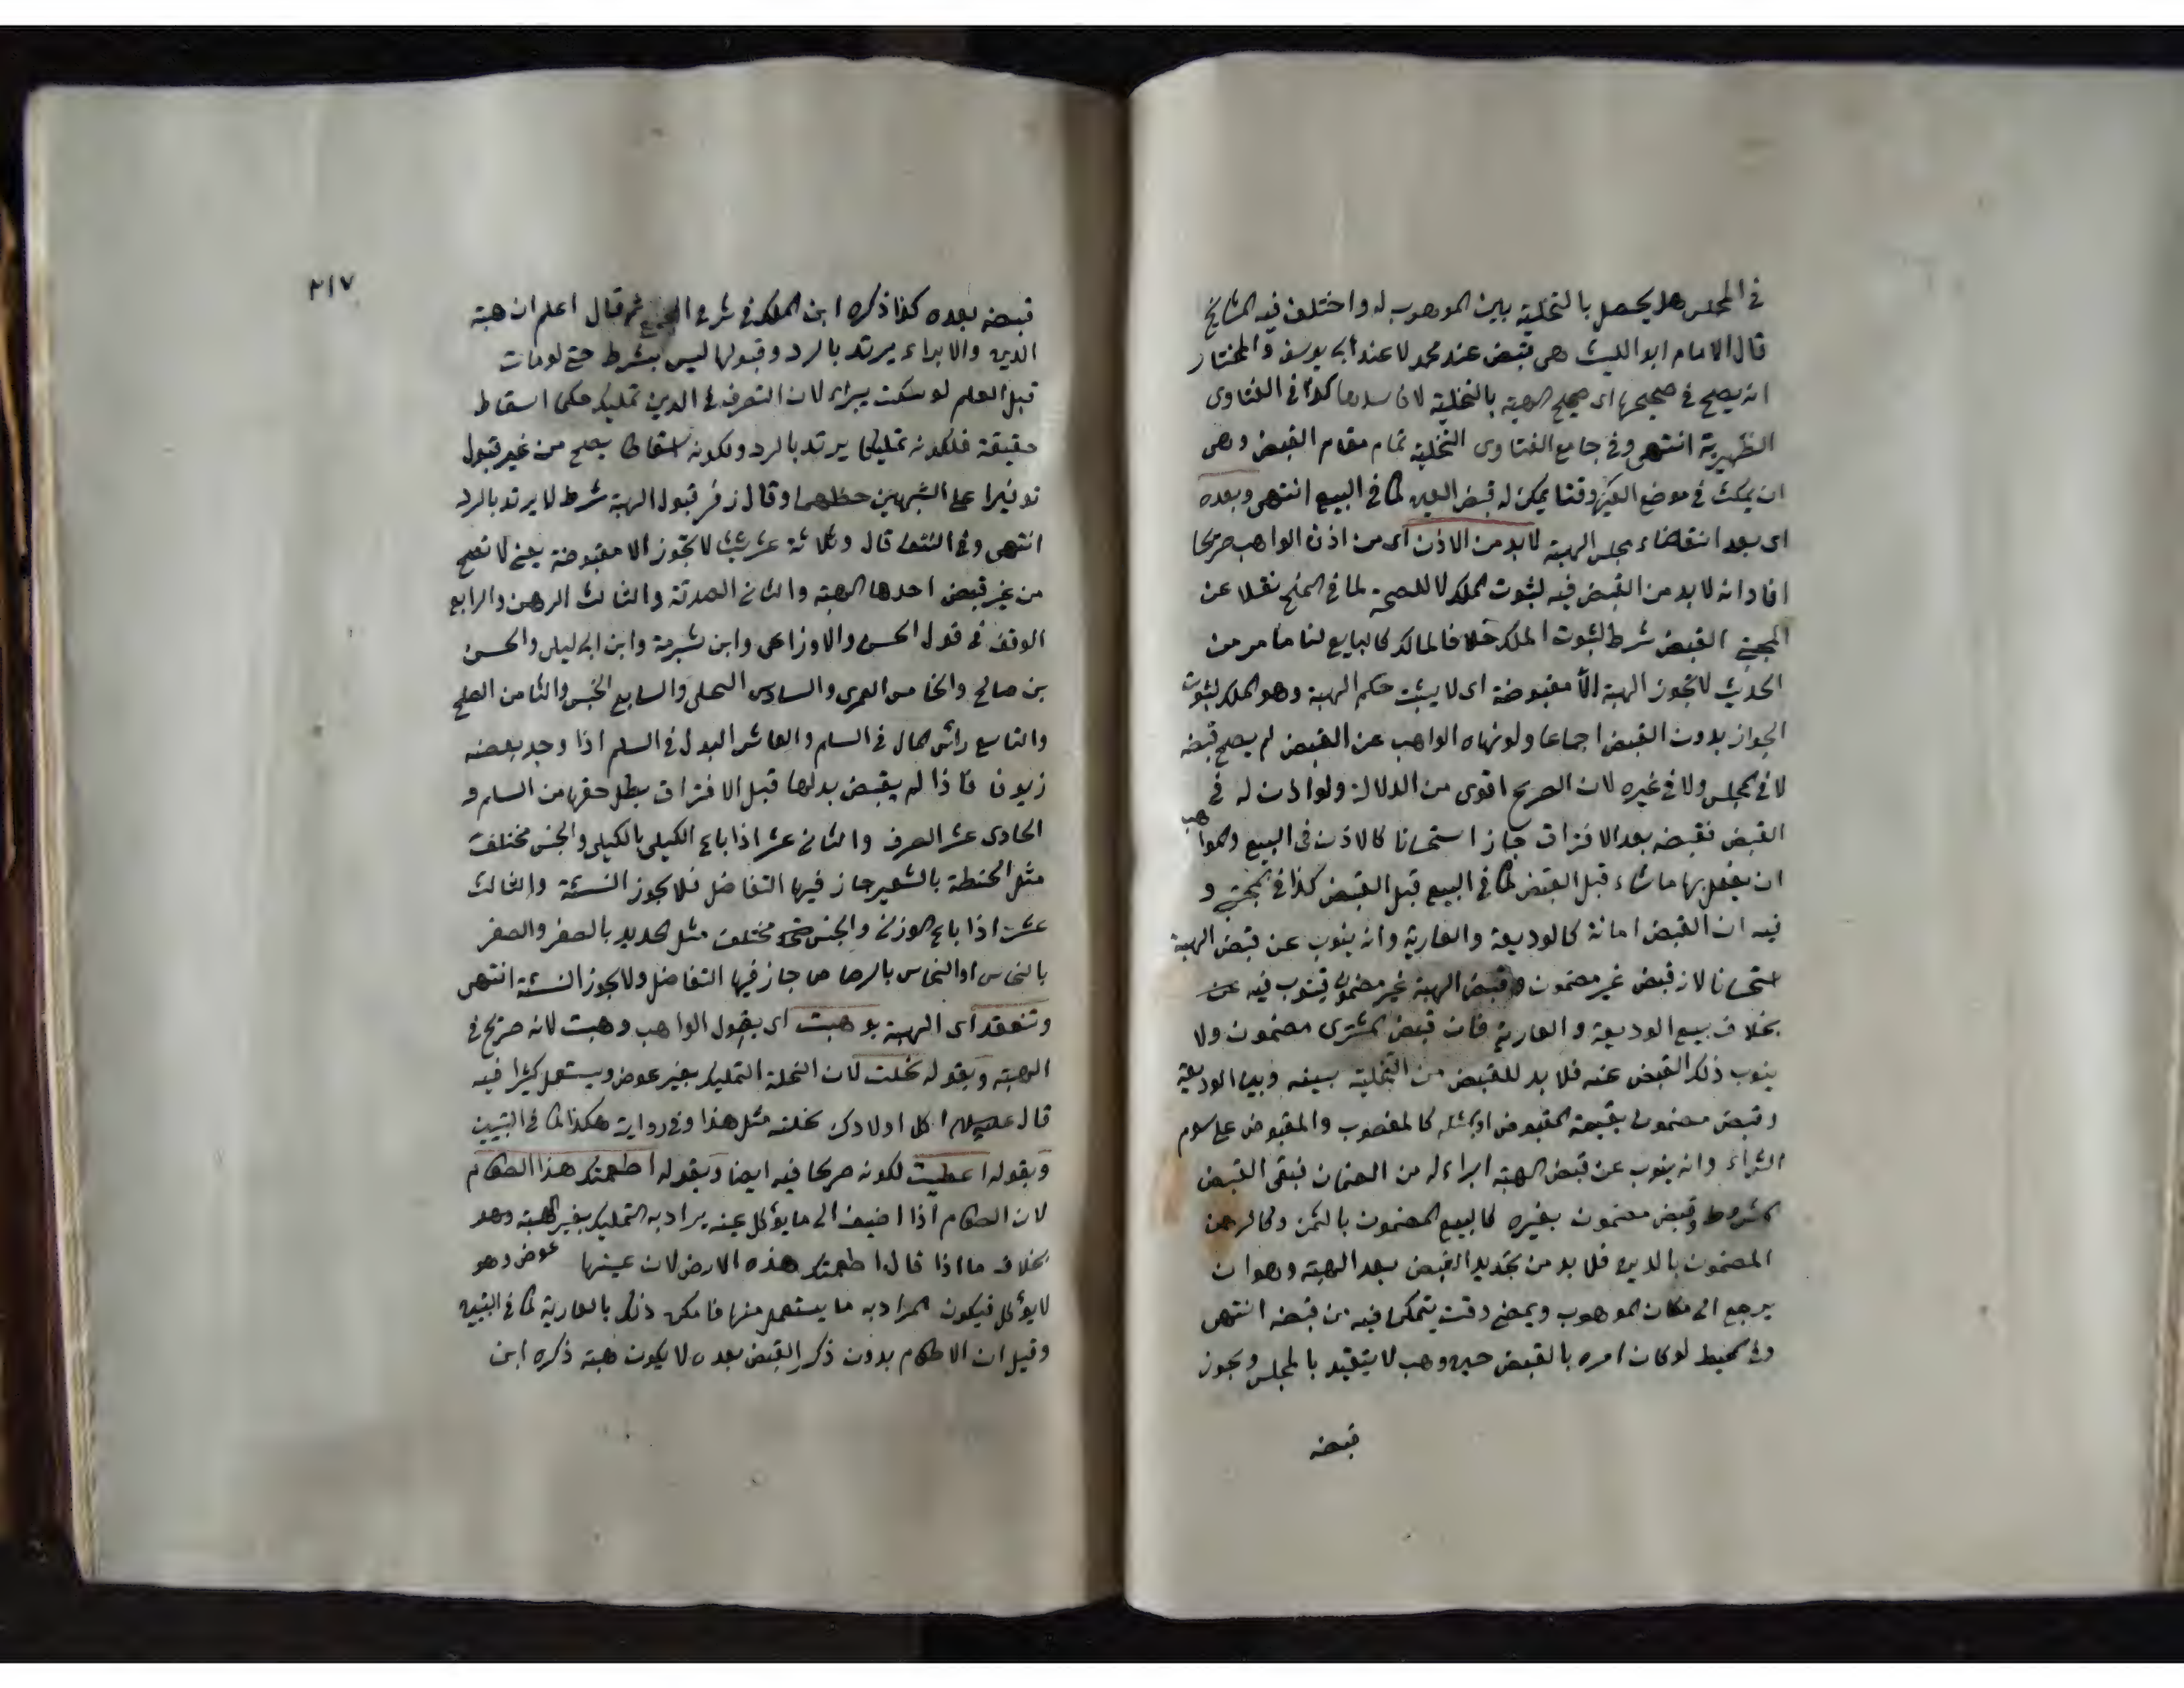 في المجلس هل يحصل بالتخلية بين الموهوب له واختلف فيه المشايخ
قال الامام ابو الليث هى قبض عند محمد لا عند ابى يوسف والمختار
انه يصح في صحيحها اى صحيح الهبة بالتخلية لان كذا في الفتاوى
الظهيرية انتهى وفي جامع الفتاوى التخلية تمام مقام القبض وهى
ان يمكث في موضع وقتا يمكن له قبض العين كما في البيع انتهى وبعده
اى بعد انقضاء مجلس الهبة لا بد من الاذن اى من اذن الواهب صريحا
افاد انه لا بد من القبض فيه لثبوت الملك لا للصحة لما في المنح نقلا عن
المجتبى القبض شرط لثبوت الملك خلافا لمالك كالبايع لنا ما مر من
الحديث لا تجوز الهبة الا مقبوضة اى لا يثبت حكم الهبة وهو الملك لثبوت
الجواز بدون القبض اجماعا ولو نهاه الواهب عن القبض لم يصح قبضه
لا في المجلس ولا في غيره لان الصريح اقوى من الدلالة ولو اذن له في
القبض فقبضه بعد الافتراق جاز استحسانا كالاذن في البيع وللواهب
ان يفعل بها ما شاء قبل القبض كما في البيع قبل القبض كذا في المجتبى و
فيه ان القبض امانة كالوديعة والعارية وانه ينوب عن قبض الهبة
استحسانا لانه قبض غير مضمون وقبض الهبة غير مضمون فينوب فيه عنه
بخلاف بيع الوديعة والعارية فان قبض المشترى مضمون ولا
ينوب ذلك القبض عنه فلا بد للقبض من التخلية بينه وبين الوديعة
وقبض مضمون بقيمة المقبوض او بمثله كالمغصوب والمقبوض على سوم
الشراء وانه ينوب عن قبض الهبة ابراء له من الضمان فبقى القبض
المشروط وقبض مضمون بغيره كالبيع المضمون بالثمن وكالرهن
المضمون بالدين فلا بد من تجديد القبض بعد الهبة وهو ان
يرجع الى مكان الموهوب ويمضى وقت يتمكن فيه من قبضه انتهى
وفي المحيط لو كان امره بالقبض حين وهب لا يتقيد بالمجلس ويجوز
قبضه
٣١٧
قبضه بعده كذا ذكره ابن الملك في شرح المجمع ثم قال اعلم ان هبة
الدين والابراء يرتد بالرد وقبولها ليس بشرط حتى لو مات
قبل العلم لو سكت يبراء لان التصرف في الدين تمليك حكما اسقاط
حقيقة فلكونه تمليكا يرتد بالرد ولكونه اسقاطا يصح من غير قبول
توفيرا على الشبهين حظهما وقال زفر قبول الهبة شرط لا يرتد بالرد
انتهى وفي النتف قال وثلاثة عشر شيئا لا تجوز الا مقبوضة يعنى لا تصح
من غير قبض احدها الهبة والثانى الصدقة والثالث الرهن والرابع
الوقف في قول الحسن والاوزاعى وابن شبرمة وابن ابى ليلى والحسن
بن صالح والخامس العمرى والسادس النحلى والسابع الحبس والثامن الصلح
والتاسع رأس المال في السلم والعاشر البدل في السلم اذا وجد بعضه
زيوفا فاذا لم يقبض بدلها قبل الافتراق بطل حقها من السلم و
الحادى عشر الصرف والثانى عشر اذا باع الكيلى بالكيلى والجنس مختلف
مثل الحنطة بالشعير جاز فيها التفاضل فلا يجوز النسئة والثالث
عشر اذا باع الوزنى والجنس مختلف مثل الحديد بالصفر والصفر
بالنحاس او النحاس بالرصاص جاز فيها التفاضل ولا يجوز النسئة انتهى
وتنعقد اى الهبة بوهبت اى بقول الواهب وهبت لانه صريح في
الهبة وبقوله نحلت لان النحلة التمليك بغير عوض ويستعمل كثيرا فيه
قال عليه السلام اكل اولادك نحلته مثل هذا وفي رواية هكذا كما في التبيين
وبقوله اعطيت لكونه صريحا فيه ايضا وبقوله اطعمتك هذا الطعام
لان الطعام اذا اضيف الى ما يؤكل عينه يراد به التمليك بغير الهبة وهو
بخلاف ما اذا قال اطعمتك هذه الارض لان عينها عوض وهو
لا يؤكل فيكون المراد به ما يستعمل منها فامكن ذلك بالعارية كما في التبيين
وقيل ان الاطعام بدون ذكر القبض بعده لا يكون هبة ذكره ابن